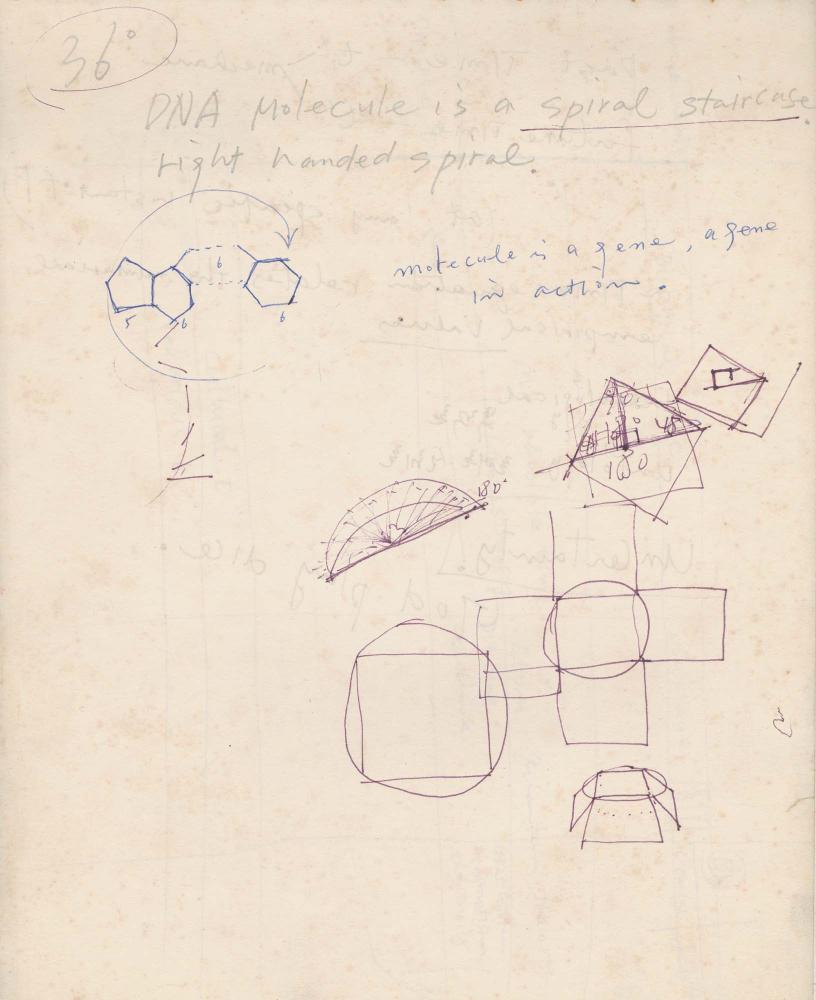 36°
DNA Molecule is a spiral staircase.
right handed spiral.
molecule is a gene, a gene
in action.
6
5 6 6
90°
45
180
180°